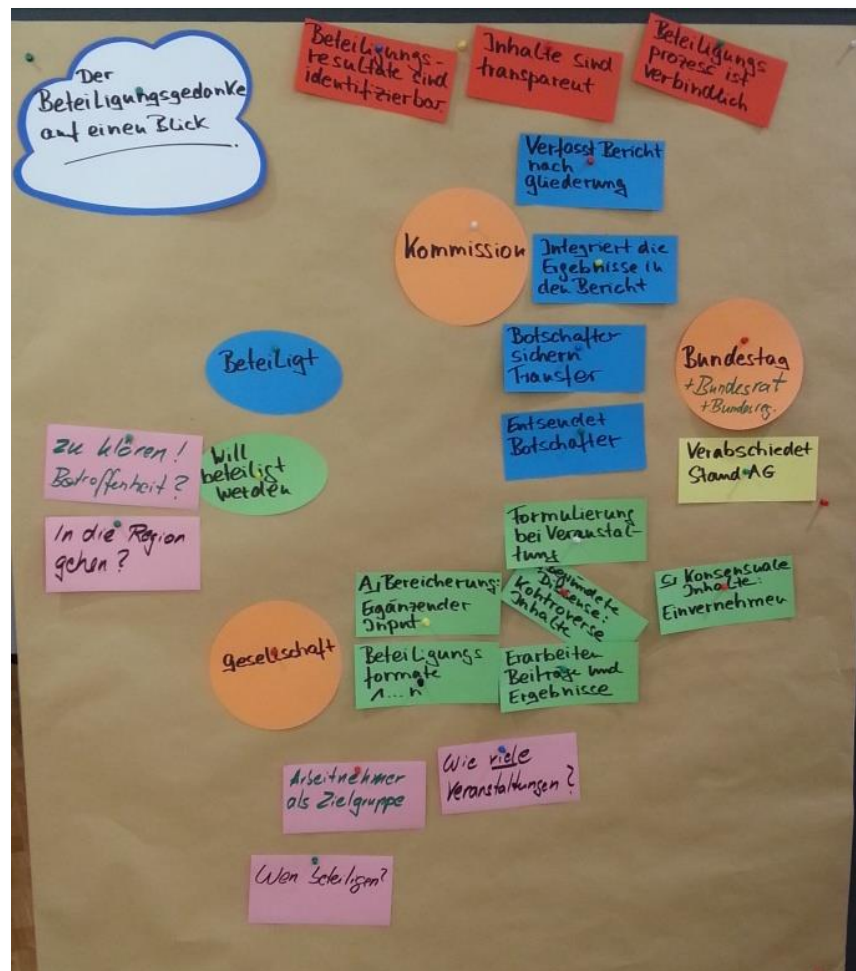 Der
Beteiligungsgedanke
auf einen Blick
Beteiligungs-
resultate sind
identifizierbar.
Inhalte sind
transparent
Beteiligungs
prozess ist
verbindlich
Verfasst Bericht
nach
gliederung
Kommission
Integriert die
Ergebnisse in
den Bericht
Botschafter
sichern
Transfer
Bundestag
+Bundesrat
+Bundesreg.
Beteiligt
Entsendet
Botschafter
Verabschiedet
StandAG
zu klären!
Betroffenheit?
Will
beteiligt
werden
In die Region
gehen?
Formulierung
bei Veranstal-
tung
A, Bereicherung:
Ergänzender
Input
Begründete
Dissense:
Kontroverse
Inhalte
C, Konsensuale
Inhalte:
Einvernehmen
gesellschaft
Beteiligungs
formate
1...n
Erarbeiten
Beiträge und
Ergebnisse
Arbeitnehmer
als Zielgruppe
Wie viele
Veranstaltungen?
Wen beteiligen?